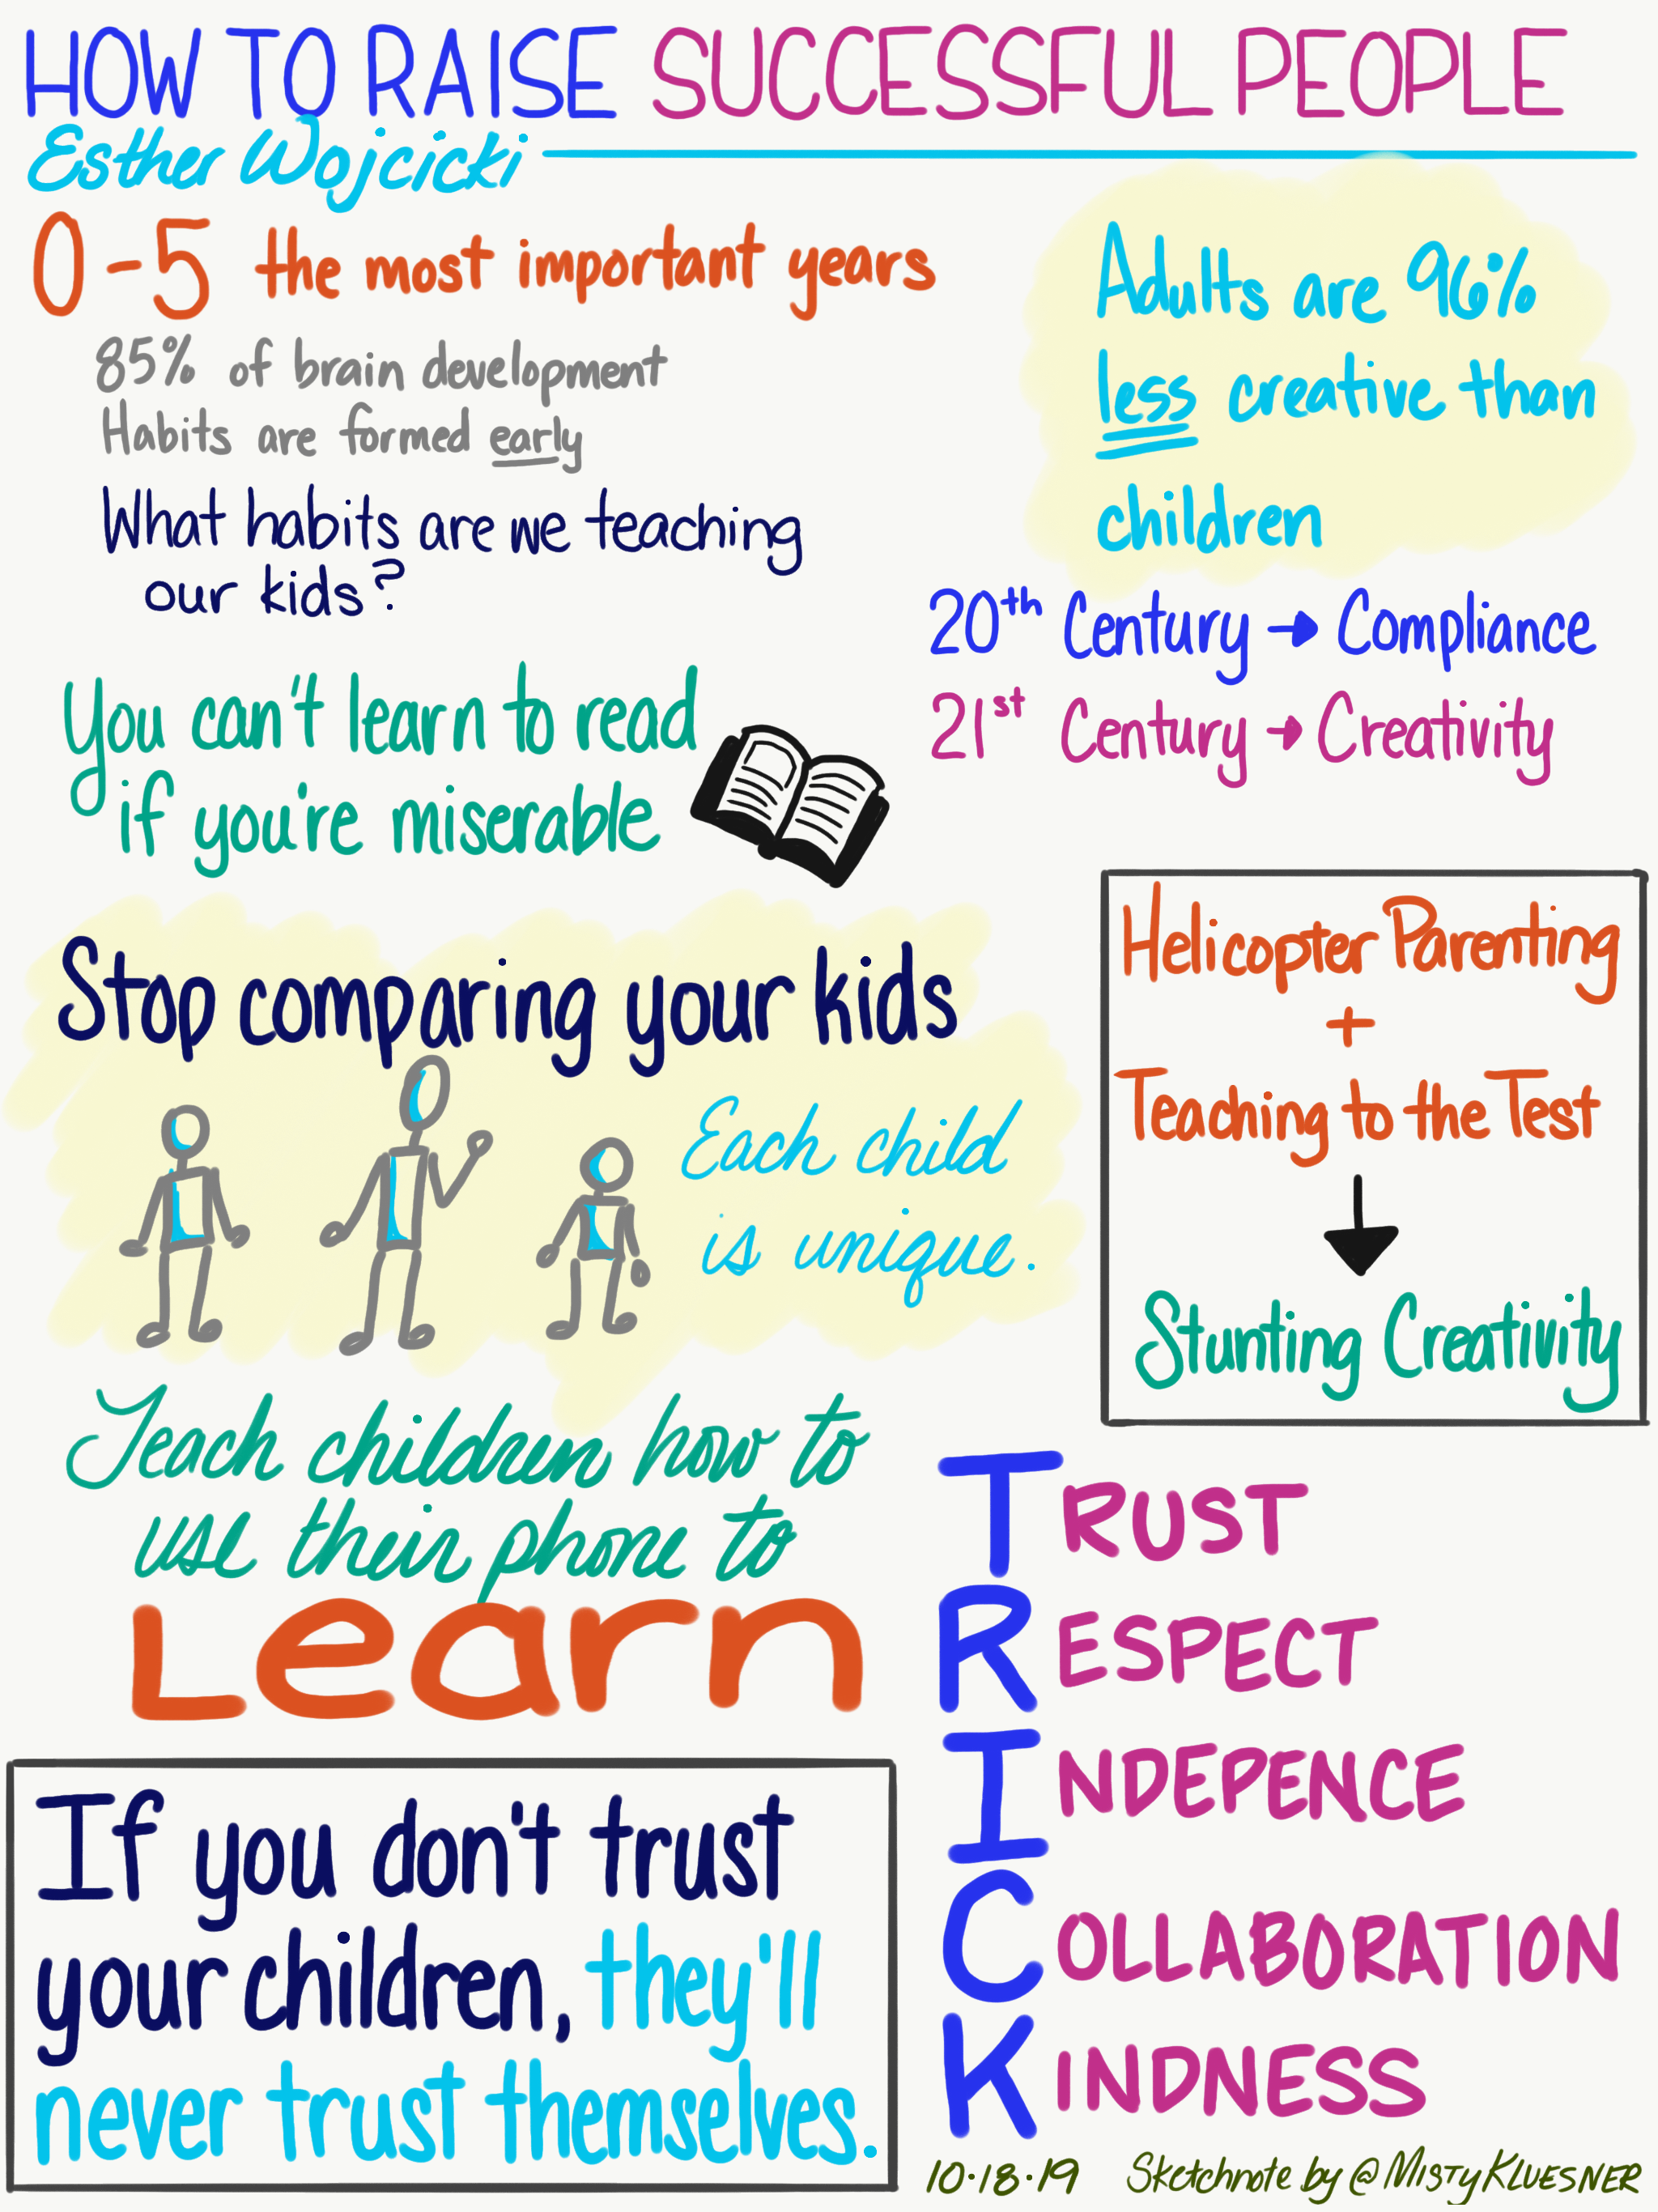 HOW TO RAISE SUCCESSFUL PEOPLE
Esther Wojcicki
0-5 the most important years
85% of brain development
Habits are formed early
What habits are we teaching
our kids?
Adults are 96%
less creative than
children
20th Century → Compliance
21st Century → Creativity
You can't learn to read
if you're miserable
Stop comparing your kids
Each child
is unique.
Helicopter Parenting
+
Teaching to the Test
Stunting Creativity
Teach children how to
use their phone to
Learn
TRUST
RESPECT
INDEPENCE
COLLABORATION
KINDNESS
If you don't trust
your children, they'll
never trust themselves.
10·18·19 Sketchnote by @MISTYKLUESNER